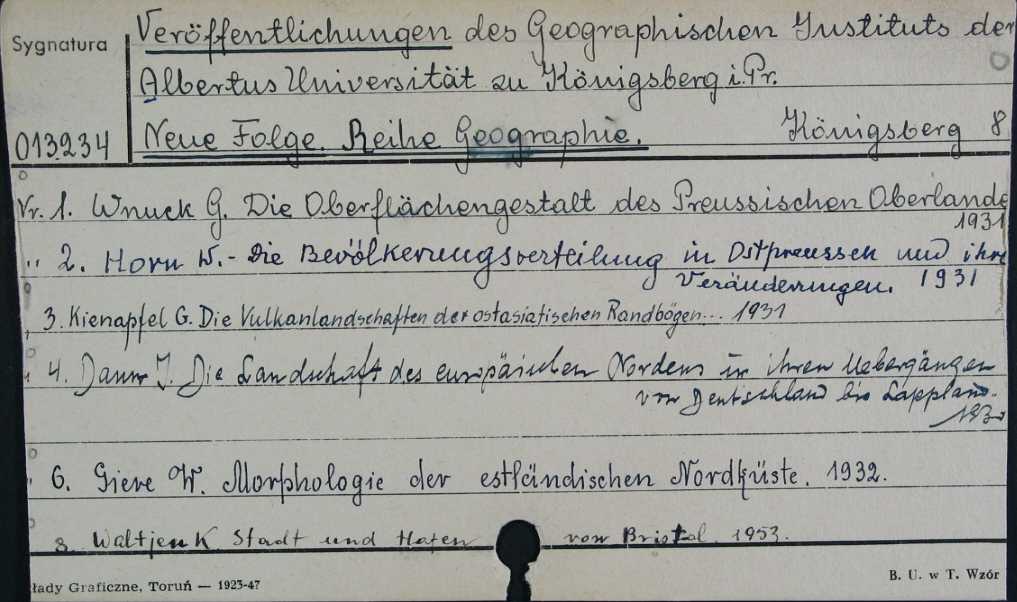 Sygnatura
Veröffentlichungen des Geographischen Instituts der
Albertus Universität zu Königsberg i. Pr.
013234
Neue Folge. Reihe Geographie. Königsberg 8
Nr. 1. Wnuck G. Die Oberflächengestalt des Preussischen Oberlande
1931
" 2. Horn W. - Die Bevölkerungsverteilung in Ostpreussen und ihre
Veränderungen. 1931
3. Kienapfel G. Die Vulkanlandschaften der ostasiatischen Randbögen... 1931
4. J. Die Landschaft des europäischen Nordens in ihren Uebergängen
von Deutschland bis Lappland.
6. Giere W. Morphologie der estländischen Nordküste. 1932.
8. Waltjen K. Stadt und Hafen von Bristol. 1953.
łady Graficzne, Toruń — 1923-47
B. U. w T. Wzór